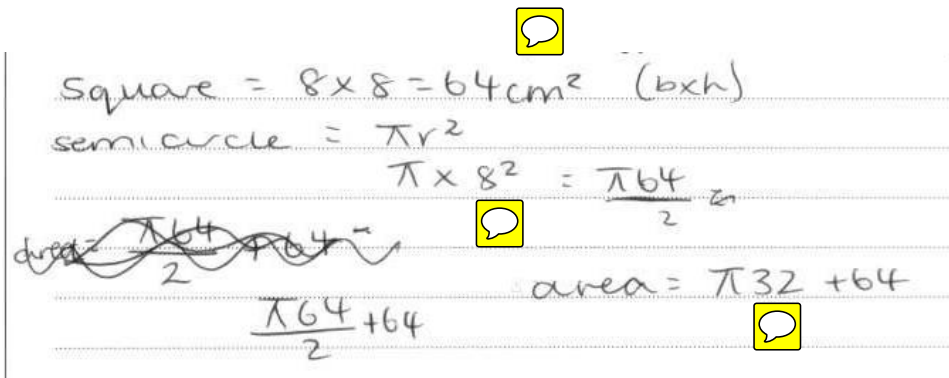 square = 8 × 8 = 64cm² (b×h)
semicircle = πr²
π × 8² = π64/2 =
area = π64/2 + 64 =
area = π32 + 64
π64/2 + 64